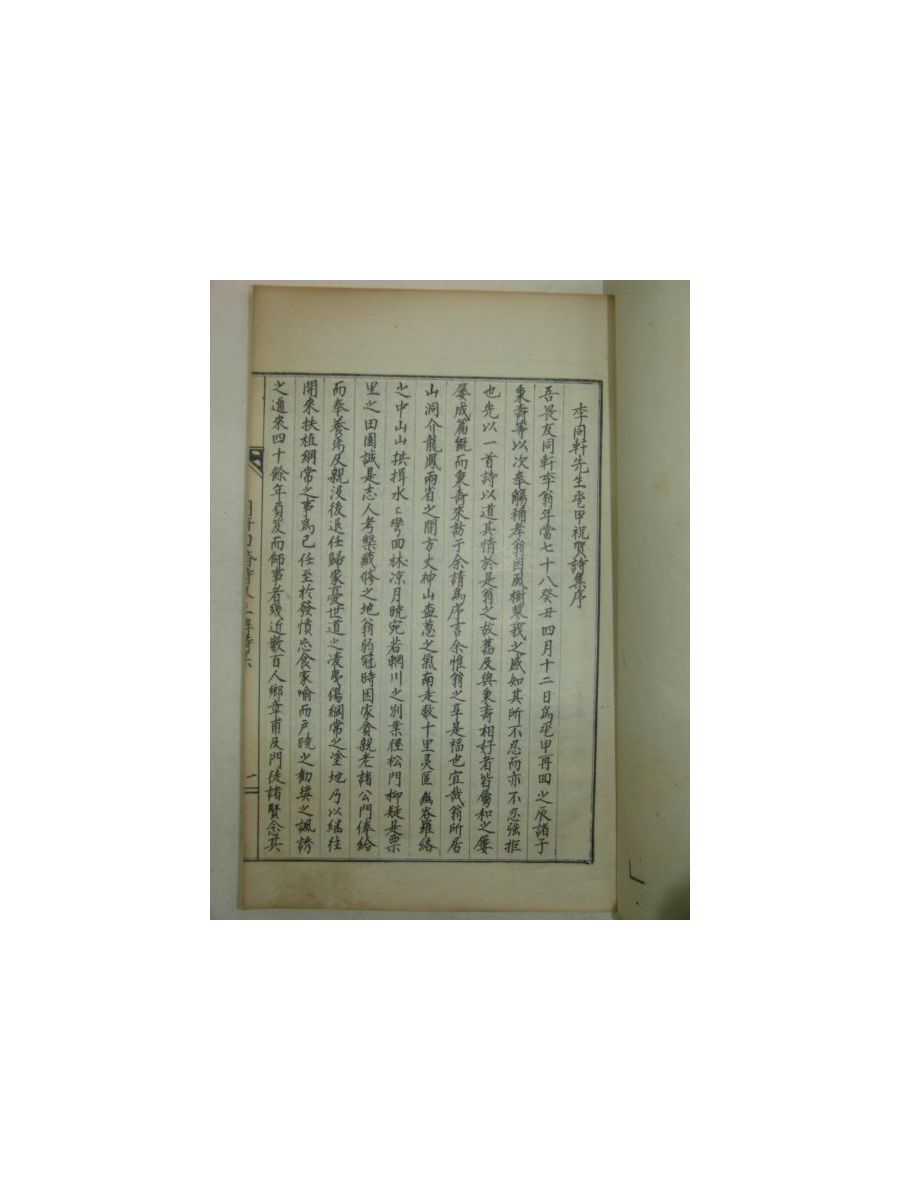 李同軒先生窀甲祝賀詩集序
吾畏友同軒李翁年當七十八癸丑四月十二日爲窀甲再回之辰諸子
秉壽等以次奉觴稱孝翁因風樹蓼莪之感知其所不忍而亦不忍強拒
也先以一首詩以道其情於是翁之故舊及與秉壽相好者皆屬和之屢
屢成篇旣而秉壽來訪于余請爲序言余惟翁之享是福也宜哉翁所居
山洞介龍鳳兩省之間方丈神山盍葱之氣南走数十里灵匡幽谷羅絡
之中山山拱揖水〻彎回林凉月曉宛若輞川之別業徑松門柳疑是栗
里之田園誠是志人考槃藏修之地翁弱冠時因家貧親老諸公門俸給
而奉養焉及親没後退任歸家憂世道之凌夷傷綱常之塗地乃以繼往
開來扶植綱常之事爲己任至於發憤忘食家喻而戸曉之勸奬之諷誘
之邇來四十餘年負笈而師事者幾近數百人鄕章甫及門徒諸賢念其
一